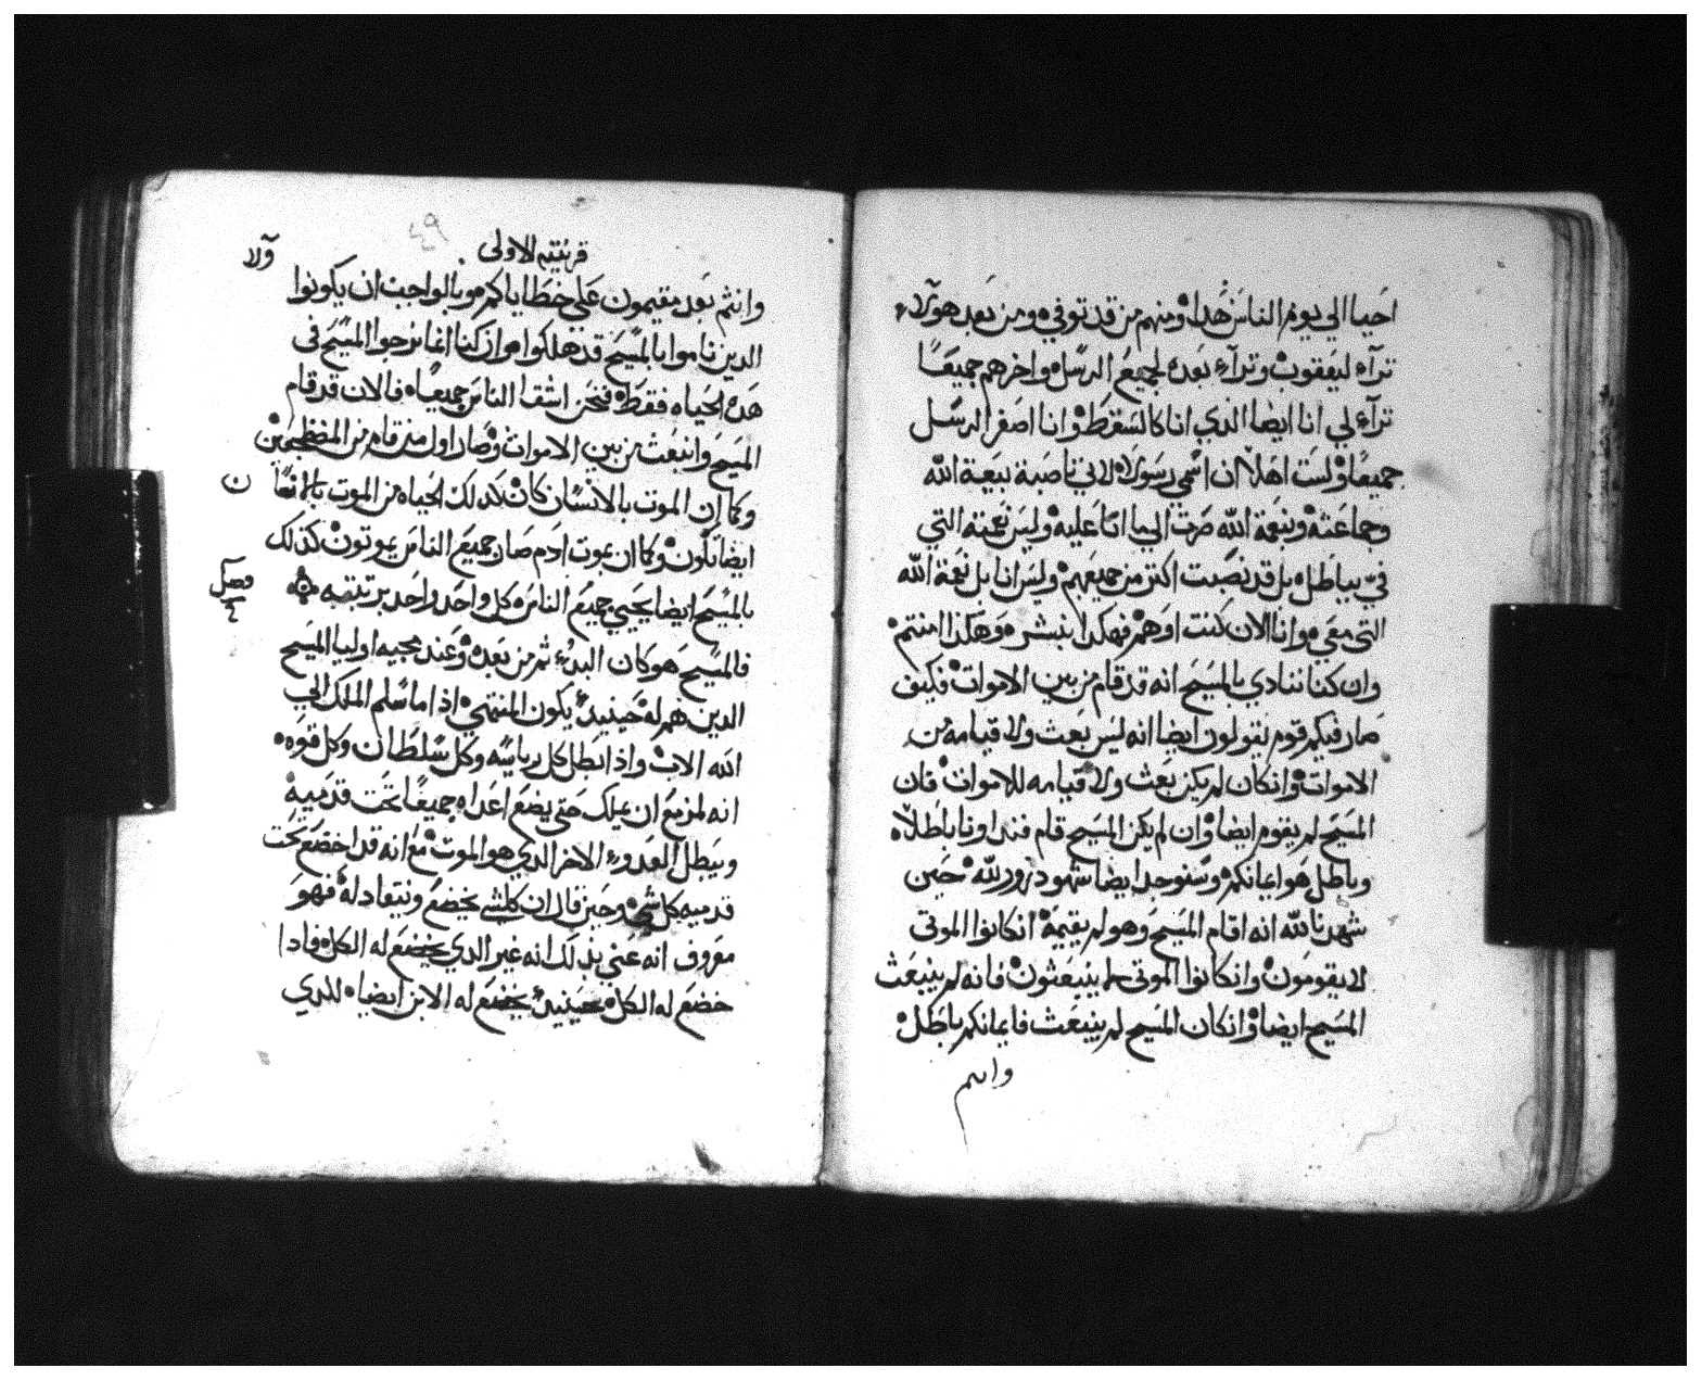 احيا الي يوم الناس هدا ومنهم من قد توفي ومن بعد هولاء
تراه ليعقوب وتراء بعده لجميع الرسل واخرهم جميعًا
تراء لي انا ايضا الدي انا كالسقط وانا اصغر الرسل
جميعًا ولست اهلا ان اسمي رسولا لاني ناصبة بيعة الله
وجماعته وبنعمة الله صرت الي ما انا عليه وليس نعمته التي
في بباطل بل قد نصبت اكثر من جميعهم وليس انا بل نعمة الله
التي معي وانا الان كنت اوهم فهكدا نبشر وهكدا امنتم
وان كنا ننادي بالمسيح انه قد قام من بين الاموات فكيف
صار فيكم قوم يقولون ايضا انه ليس بعث ولا قيامه من
الاموات وانكان لم يكن بعث ولا قيامه للاموات فان
المسيح لم يقوم ايضا وان لم يكن المسيح قام فنداونا باطلاً
وباطل هو ايمانكم وسنوجد ايضا شهود زور لله حين
شهدنا لله انه اقام المسيح وهو لم يقيمه انكانوا الموتى
لا يقومون وانكانوا الموتى لم ينبعثون فانه لم ينبعث
المسيح ايضا وانكان المسيح لم ينبعث فايمانكم باطل
وانتم
٤٩
قرنتيه الاولى
ولا
وانتم بعد مقيمون على خطاياكم وبالواجب ان يكونوا
الدين ناموا بالمسيح قد هلكوا وان كنا انما نرجوا المسيح في
هده الحياه فقط فنحن اشقا الناس جميعًا فالان قد قام
المسيح وانبعث من بين الاموات وصار اول من قام من المضطجعين
وكما ان الموت بالانسان كان كدلك الحياه من الموت بالانسان
ايضا تكون وكما ان بموت ادم صار جميع الناس يموتون كذلك
بالمسيح ايضا يحيي جميع الناس كل واحد واحد برتبته
فصل
٤
فالمسيح هو كان البدء ثم من بعده وعند مجيه اوليا المسيح
الدين هم له حينيد يكون المنتهي اذ اما سلم الملك الي
الله الاب واذ ابطل كل رياسه وكل سلطان وكل قوه
انه لمزمع ان يملك حتى يضع اعداه جميعًا تحت قدميه
ويبطل العدو الاخر الدي هو الموت مع انه قد اخضع تحت
قدميه كل شي وحين قال ان كلشي يخضع وينقاد له فهو
معروف انه عني بذلك انه غير الدي يخضع له الكل فادا
خضع له الكل حينيد يخضع له الابن ايضا للدي